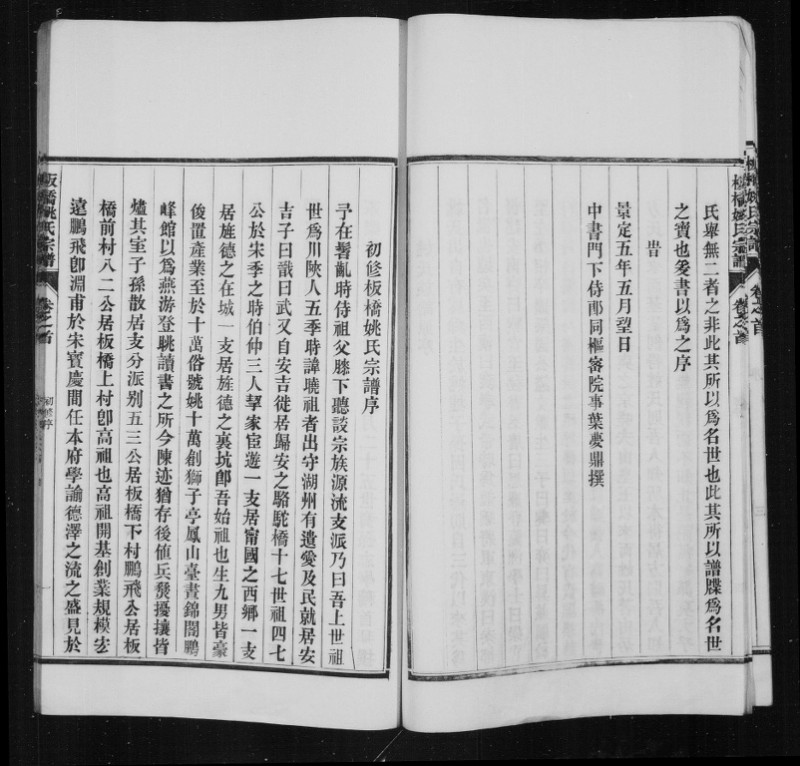 氏舉無二者之非此其所以爲名世也此其所以譜牒爲名世
之寶也爰書以爲之序
旹
景定五年五月望日
中書門下侍郎同樞密院事葉慶鼎撰
初修板橋姚氏宗譜序
予在髫齔時侍祖父膝下聽談宗族源流支派乃曰吾上世祖
世爲川陜人五季時諱驍祖者出守湖州有遺愛及民就居安
吉子曰戩曰武又自安吉徙居歸安之駱駝橋十七世祖四七
公於宋季之時伯仲三人挈家宦遊一支居甯國之西鄉一支
居旌德之在城一支居旌德之裏坑卽吾始祖也生九男皆豪
俊置產業至於十萬俗號姚十萬創獅子亭鳳山臺晝錦閣鵬
峰館以爲燕游登眺讀書之所今陳迹猶存後値兵燹擾攘皆
燼其室子孫散居支分派别五三公居板橋下村鵬飛公居板
橋前村八二公居板橋上村卽高祖也高祖開基創業規模宏
遠鵬飛卽淵甫於宋寶慶間任本府學諭德澤之流之盛見於
板橋姚氏宗譜
卷之首
初修序
板橋姚氏宗譜
卷之首